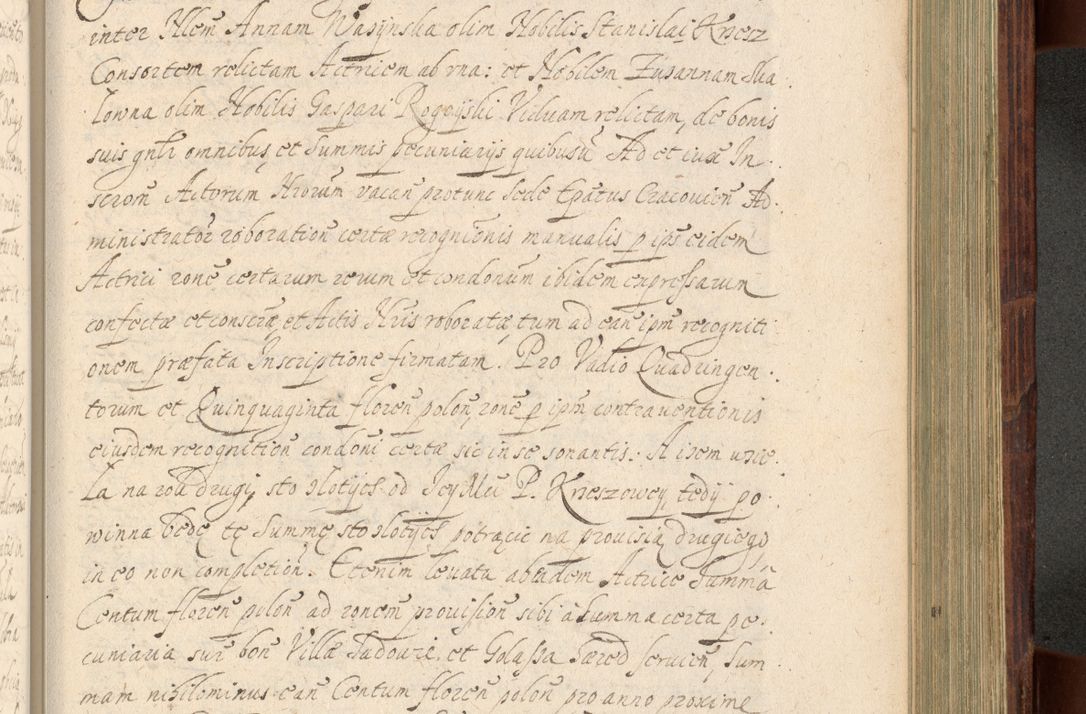 inter Illem̃ Annam Wasÿnska olim Nobilis Stanislai Kriesz
Consortem relictam Actricem ab vna: et Nobilem Zusannam Ska
lowna olim Nobilis Gaspari Rogoÿski Viduam relictam, de bonis
suis gnlr̃ omnibus et summis pecuniarijs quibusũ Ad et
scrom̃ Actorum vacañ protunc Sede Epãtus Cracovien̄ Ad
ministrator̃ roboration̄ certæ recognĩonis manualis p ips̃ eidem
Actrici rone certarum rerum et condonũm ibidem expressarum
confectæ et conscrã et Actis Nr̃is roboratæ tum ad eañ ipm̃ recogniti
onem præfata Inscriptione firmatam. Pro Vadio Quadringen
torum et Quinquaginta floreñ poloñ, ronẽ p ipm̃ contraventionis
eiusdem recognitioñ condoñi certæ sic in se sonantis: A isem
la na drugi sto zlotÿch od Jey Mci P. Krieszowey, tedÿ po
winna bede te Summę sto zlotÿch potrącic na prouisią drugiego
in eo non completioñ. Etenim levata ab eadem Actrice Summã
Centum floreñ poloñ ad ronem̃ provisioñ sibi à summa certa pe
cuniaria sup̃ boñ Villæ Sadovie et Golassa servieñ, Sum
mam nihilominus eañ Centum floreñ poloñ pro anno proxime